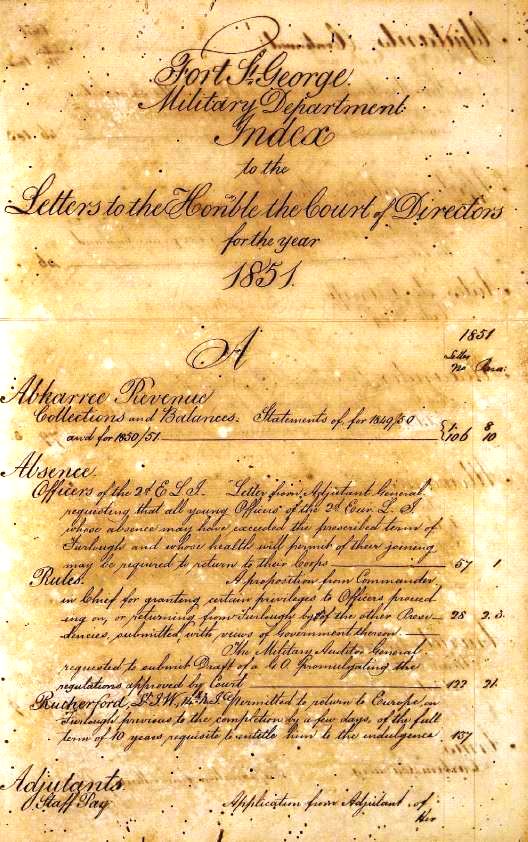 Fort St. George.
Military Department
Index
to the
Letters to the Honble the Court of Directors
for the year
1851.
A
1851
Letter No Para:
Abkarree Revenue
Collections and Balances. Statements of, for 1849/50
and for 1850/51 { 1. 8
106 10
Absence
Officers of the 2d E L I. Letter from Adjutant General,
requesting that all young Officers of the 2d Eur. L. I
whose absence may have exceeded the prescribed term of
Furlough and whose health will permit of their joining
may be required to return to their Corps 57 1
Rules. A proposition from Commander
in Chief for granting certain privileges to Officers proceed
ing on, or returning from Furlough by of the other Presi- 28 2.3.
dencies, submitted, with views of Government thereon.
The Military Auditor General
requested to submit Draft of a G.O. promulgating the
regulations approved by Court 21.
Rutherford, Lt. Permitted to return to Europe, on
Furlough previous to the completion by a few days, of the full
term of 10 years requisite to entitle him to the indulgence 137
Adjutants
Staff Pay Application from Adjutant of